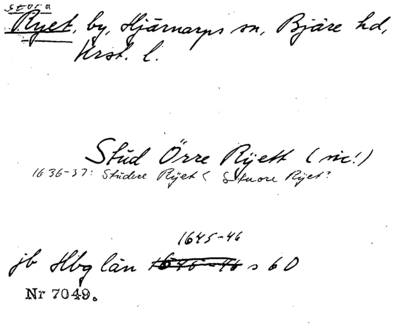 Stora
Ryet, by, Hjärnarps sn, Bjäre hd,
Krst. l.
Stud Örre Rÿett (sic!)
1636-37: Studere Rÿet < Stuore Rÿet?
1645-46
jb Hbg län 1645-46 s 60
Nr 7049.